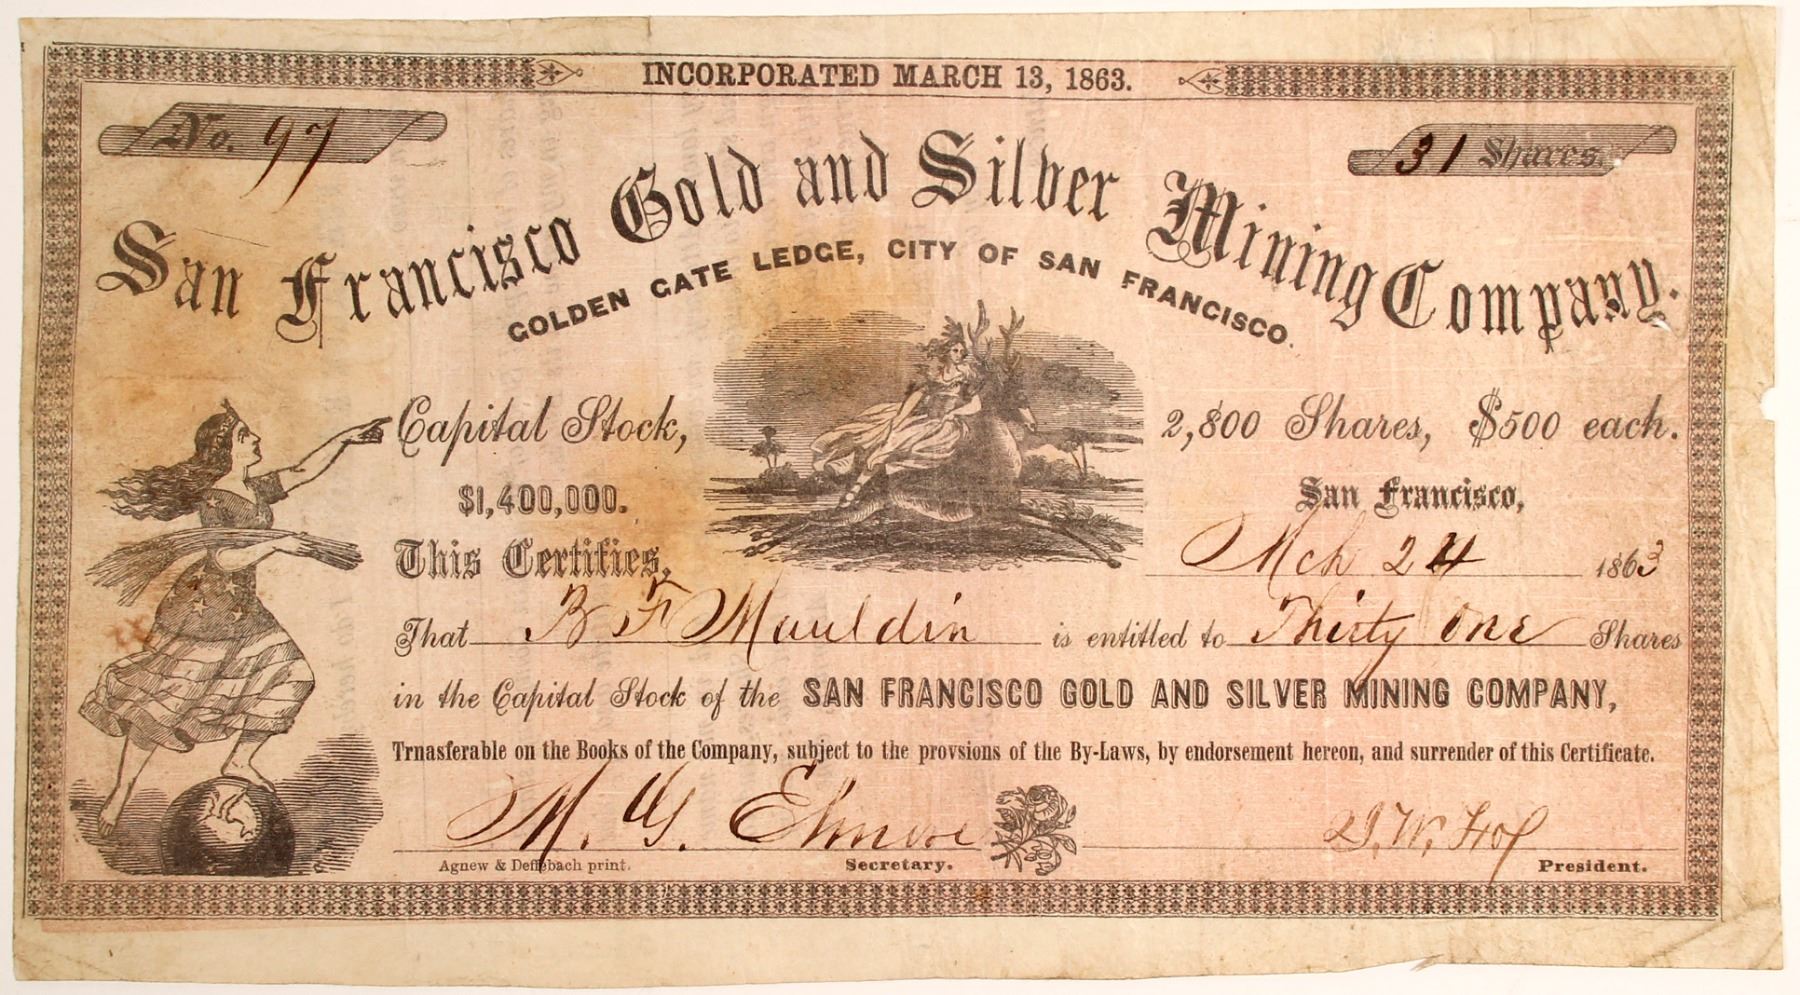 INCORPORATED MARCH 13, 1863.
No. 97
31 Shares.
San Francisco Gold and Silver Mining Company.
GOLDEN GATE LEDGE, CITY OF SAN FRANCISCO.
Capital Stock, 2,800 Shares, $500 each.
$1,400,000. San Francisco,
This Certifies, Mch 24 1863
That B F Mauldin is entitled to Thirty One Shares
in the Capital Stock of the SAN FRANCISCO GOLD AND SILVER MINING COMPANY,
Trnasferable on the Books of the Company, subject to the provsions of the By-Laws, by endorsement hereon, and surrender of this Certificate.
M. G. Elmore
Agnew & Deffebach print. Secretary. President.